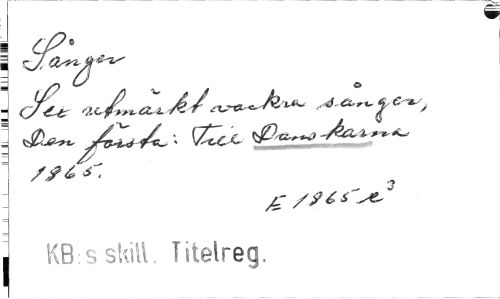 Sånger
Sex utmärkt vackra sånger,
Den första: Till Danskarna
1865.
E 1865 e³
KB:s skill. Titelreg.